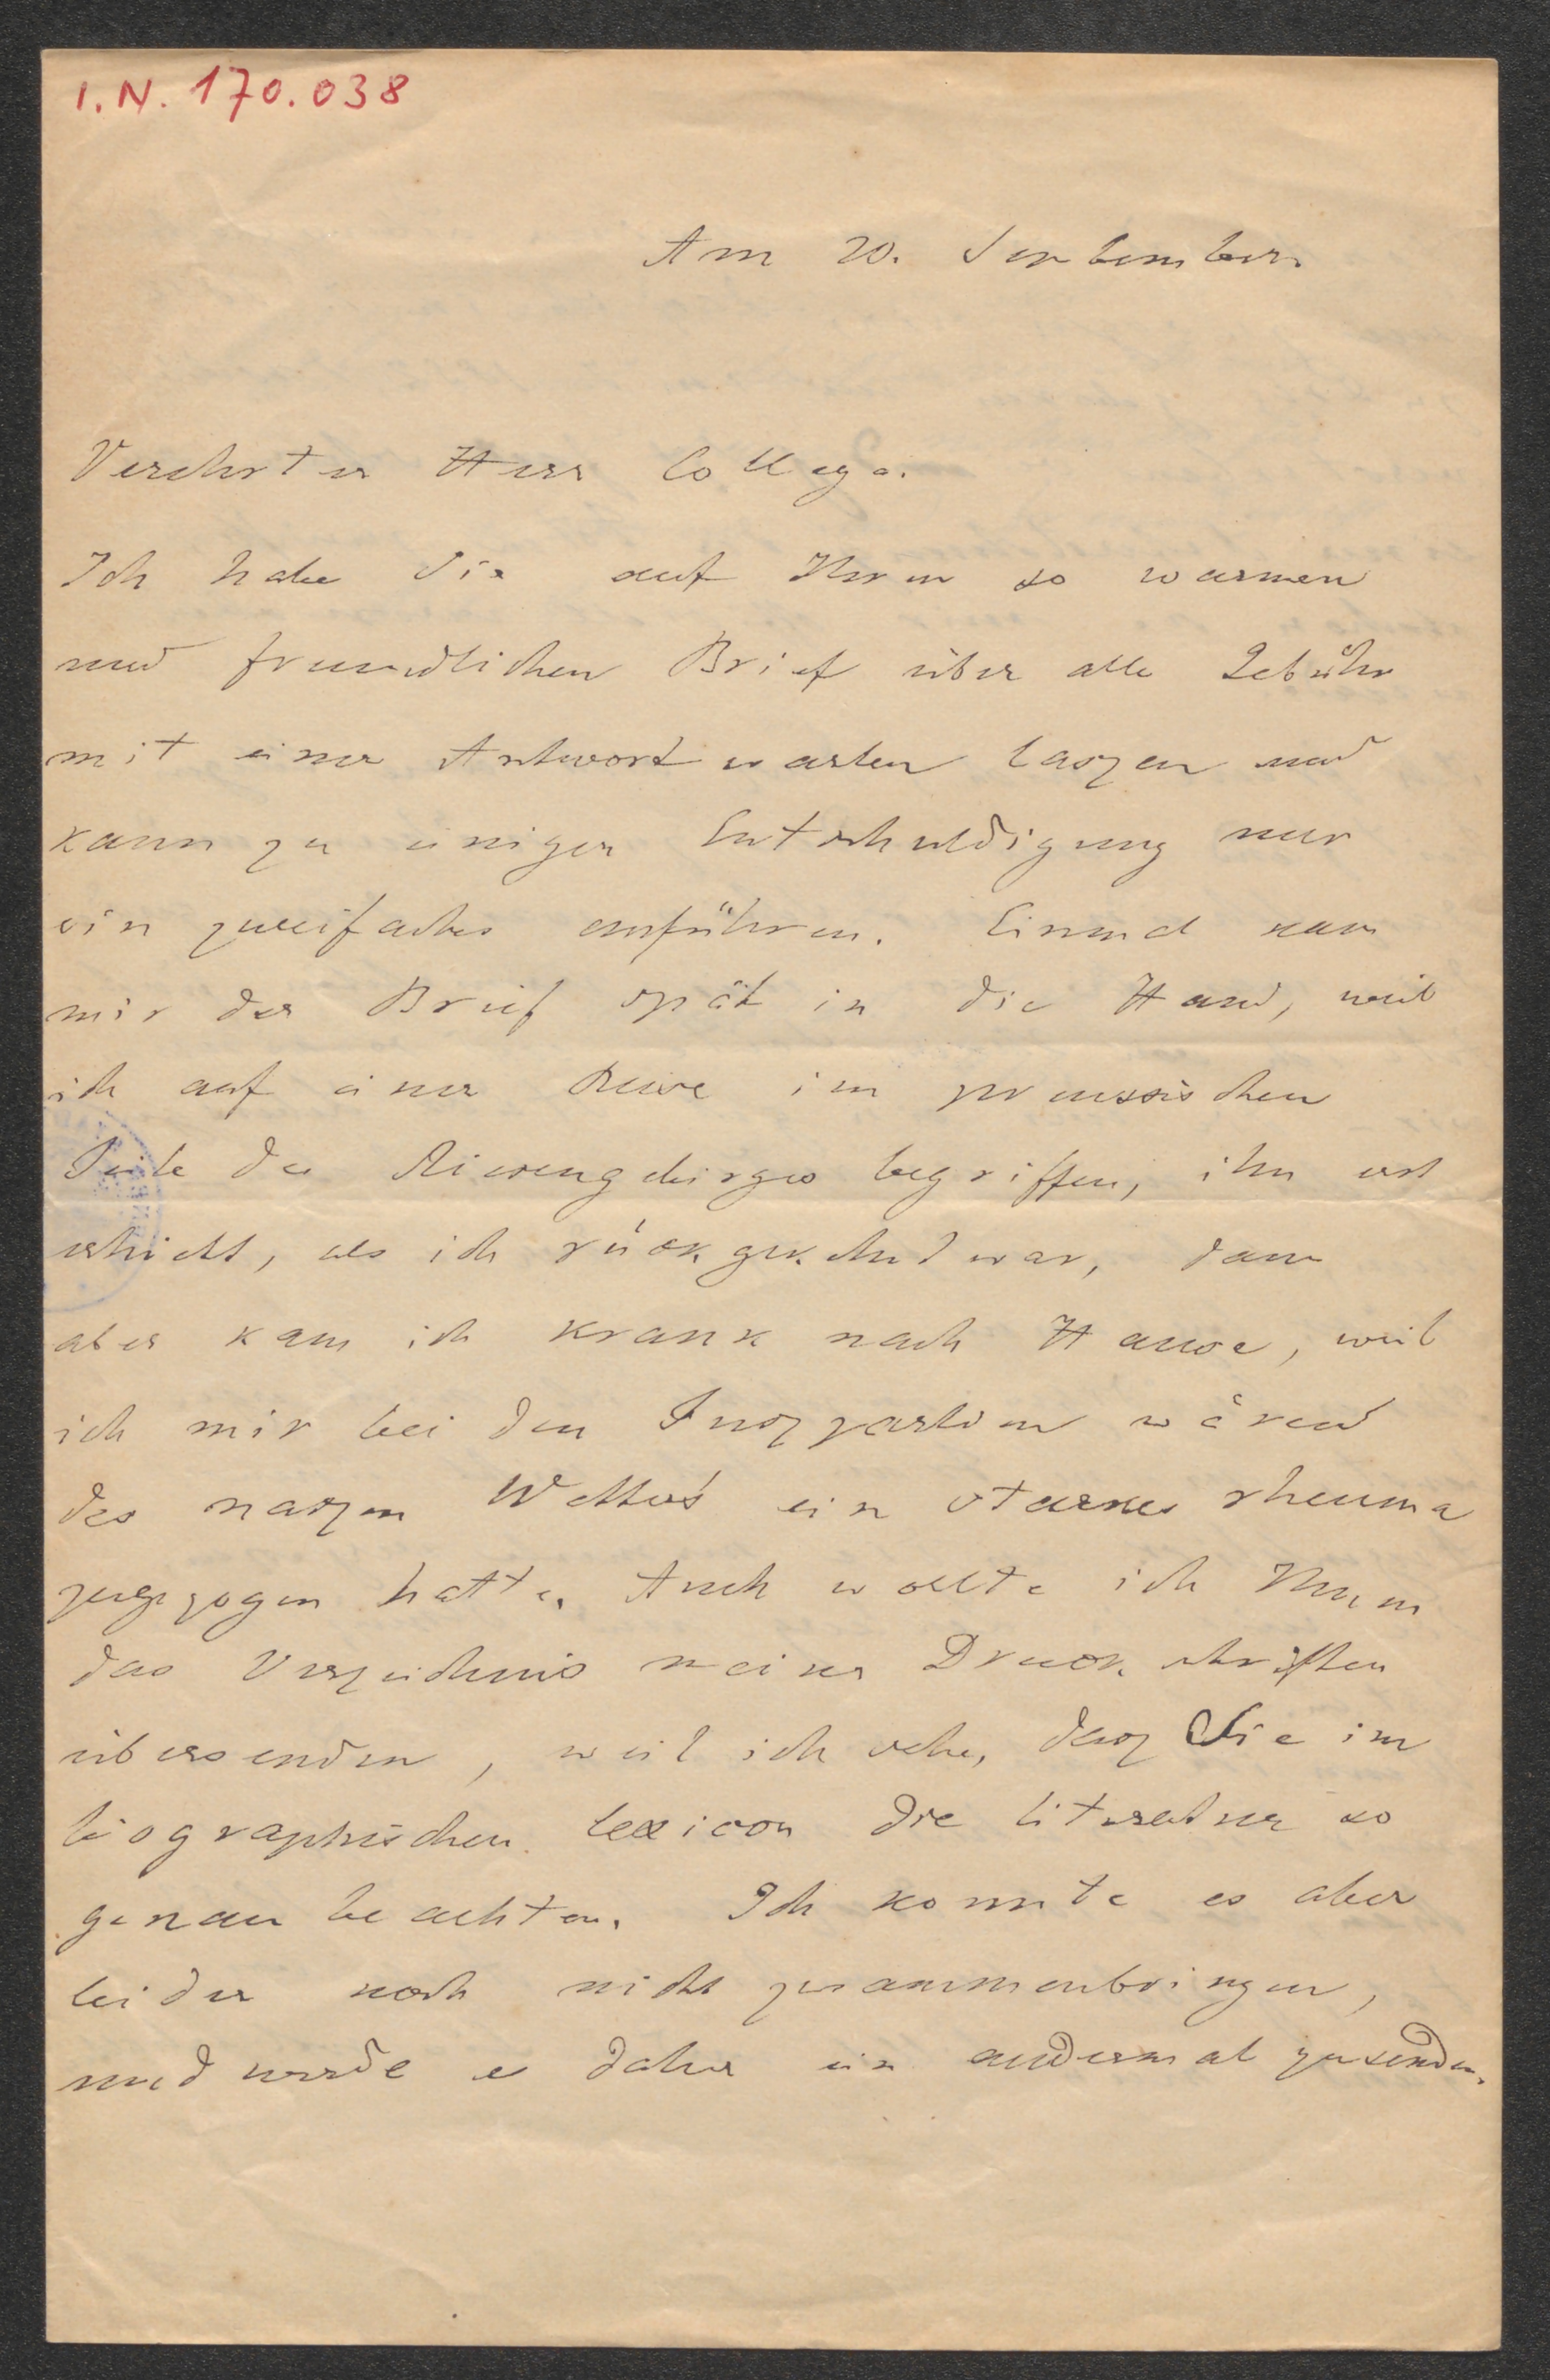 I.N. 170.038
Am 20. September.
Verehrter Herr Collega.
Ich habe Sie auf Ihren so warmen
und freundlichen Brief über alle Gebühr
mit einer Antwort warten laszen und
kann zu einiger Entschuldigung nur
ein zweifaches anführen. Einmal kam
mir der Brief spät in die Hand, weil
ich auf einer Reise im preussischen
Teile des Riesengebirges begriffen, ihn erst
erhielt, als ich rückgekehrt war, dann
aber kam ich krank nach Hause, weil
ich mir bei den Fuszpartien wärend
des naszen Wetters ein starkes rheuma
zugezogen hatte. Auch wollte ich Ihnen
das Verzeichnis meiner Druckschriften
übersenden, weil ich sehe, dasz Sie im
biographischen Lexicon die Literatur so
genau beachten. Ich konnte es aber
leider noch nicht zusammenbringen,
und werde es daher ein andermal zusenden.